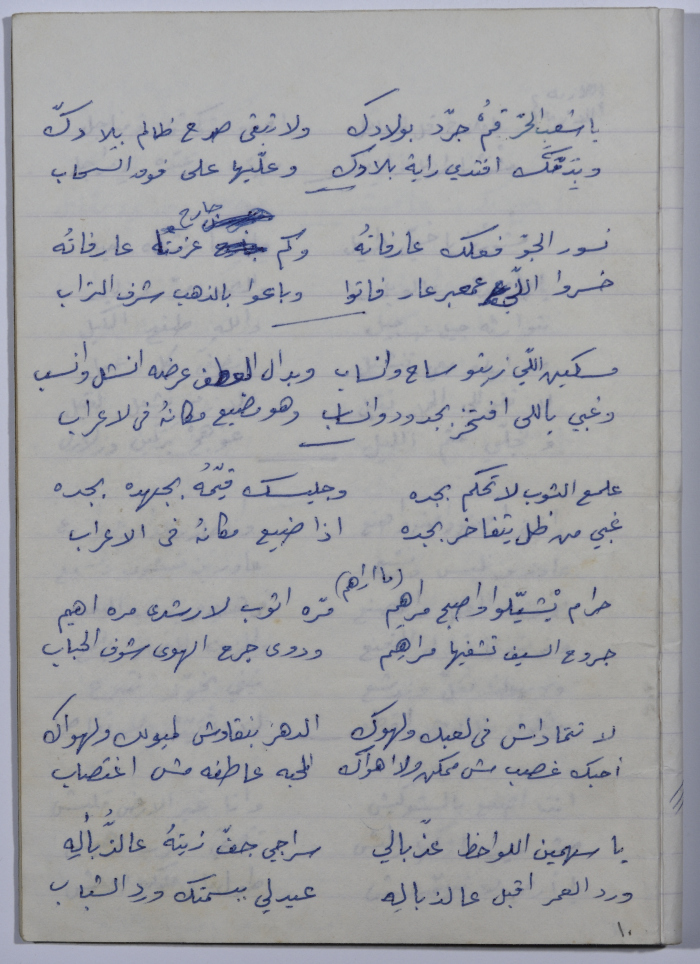 يا شعب الحرّ قمْ جرّد بولادك ولا تبقى صرح ظالم ببلادكّ
وبتدمّك افتدي راية بلادك وعلّيها على فوق السحاب
نسور الجوّ فعلك عارفاتهُ وكم جارح عزمتهُا عارفاته
خسروا اللّي عمعبر عار فاتوا وباعوا بالذهب شرف التراب
مسكين اللّي زيتو ساح وانساب وبدال العطف عرضه انشل وانسب
وغبي ياللي افتخر بجدود وانساب وهو مضيع مكانهُ في لاعراب
علمع الثوب لا تحكم بجده وجليسك قيّمهُ بجهده بجده
غبي من ظل يتفاخر بجده اذا ضيع مكانهُ في الاعراب
حرام يْشيّلوا واصبح مراهم (ما اراهم) مرّه اتوب لا رشدي مره اهيم
جروح السيف تشفيها مراهم ودوى جرح الهوى شوف الحباب
لا تتماداش في لعبك ولهوك الدهر بنقاوش لميولك ولهواك
احبك غصب مش ممكن ولا اهواك المحبه عاطفه مش اغتصاب
يا سهمين اللواحظ عذّبالي سراجي جفّ زيتهُ عالذُّبألِه
ورد العمر اقبل عالذبالِه عيدلي ببسمتك ورد الشباب
١٠